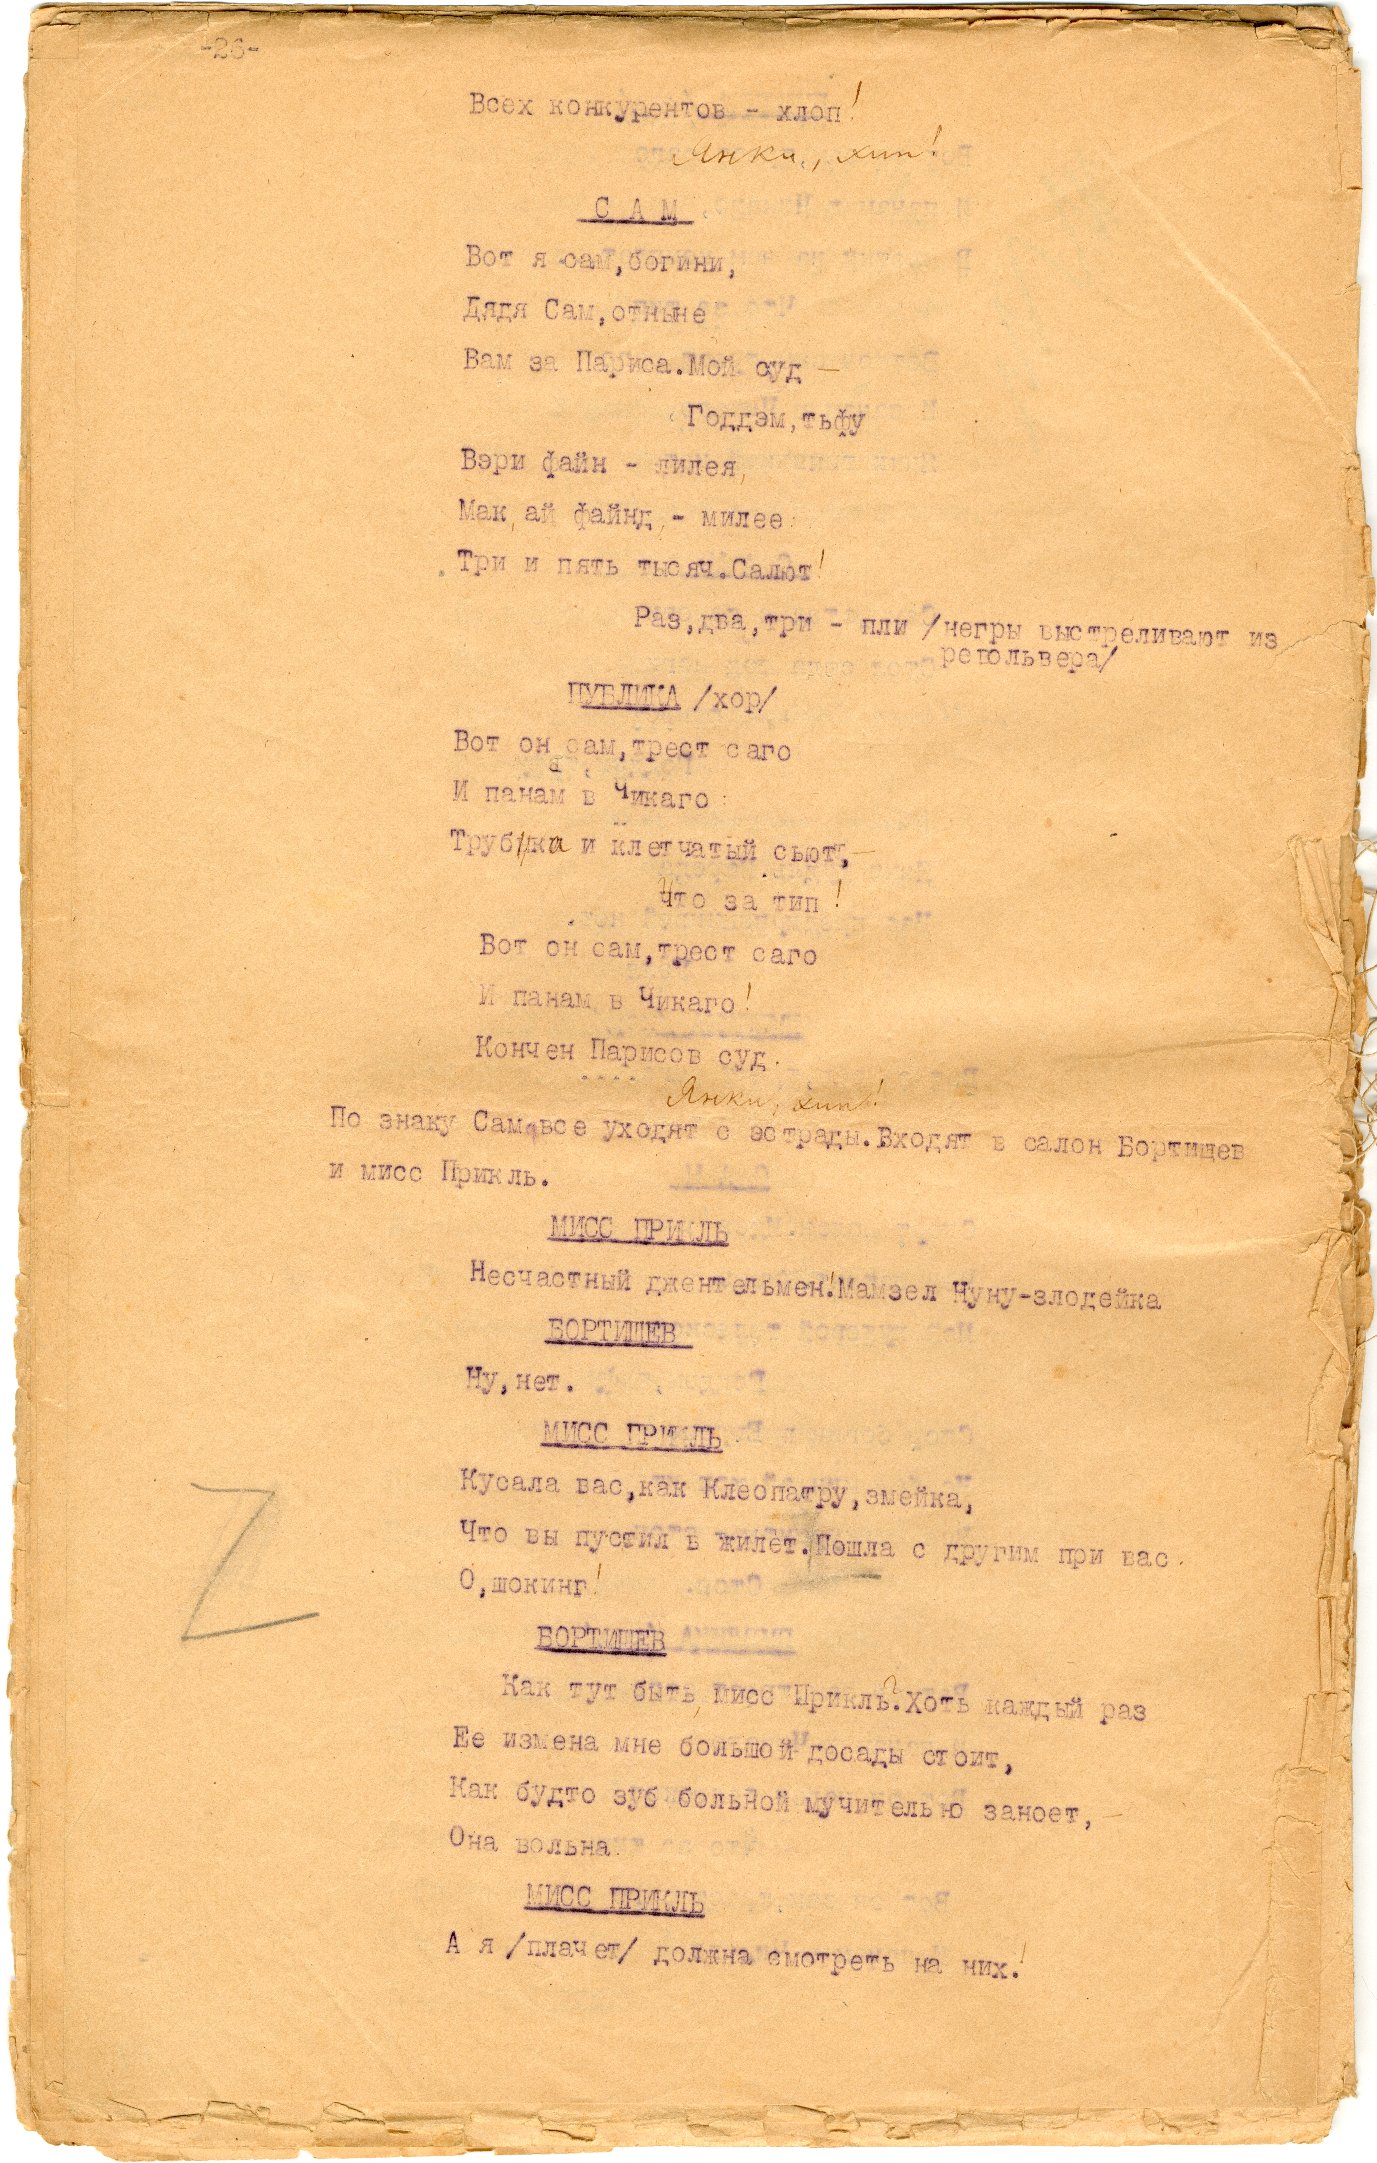 -26-
Всех конкурентов - хлоп!
Янки, хип!
С А М
Вот я сам,богини,
Дядя Сам,отныне
Вам за Париса.Мой суд —
Годдэм,тьфу
Вэри файн - лилея,
Мак, ай файнд, - милее
Три и пять тысяч.Салют!
Раз,два,три - пли /негры выстреливают из
револьвера/
ПУБЛИКА /хор/
Вот он сам,трест саго
И панам в Чикаго
Трубка и клетчатый сьют,—
Что за тип!
Вот он сам,трест саго
И панам в Чикаго!
Кончен Парисов суд.
Янки, хип!
По знаку Сама все уходят с эстрады.Входят в салон Бортищев
и мисс Прикль.
МИСС ПРИКЛЬ
Несчастный джентельмен!Мамзел Нуну-злодейка
БОРТИЩЕВ
Ну,нет.
МИСС ПРИКЛЬ
Кусала вас,как Клеопатру,змейка,
Что вы пустил в жилет.Пошла с другим при вас.
О,шокинг!
БОРТИЩЕВ
Как тут быть, мисс Прикль?Хоть каждый раз
Ее измена мне большой досады стоит,
Как будто зуб больной мучительно заноет,—
Она вольна
МИСС ПРИКЛЬ
А я /плачет/ должна смотреть на них!